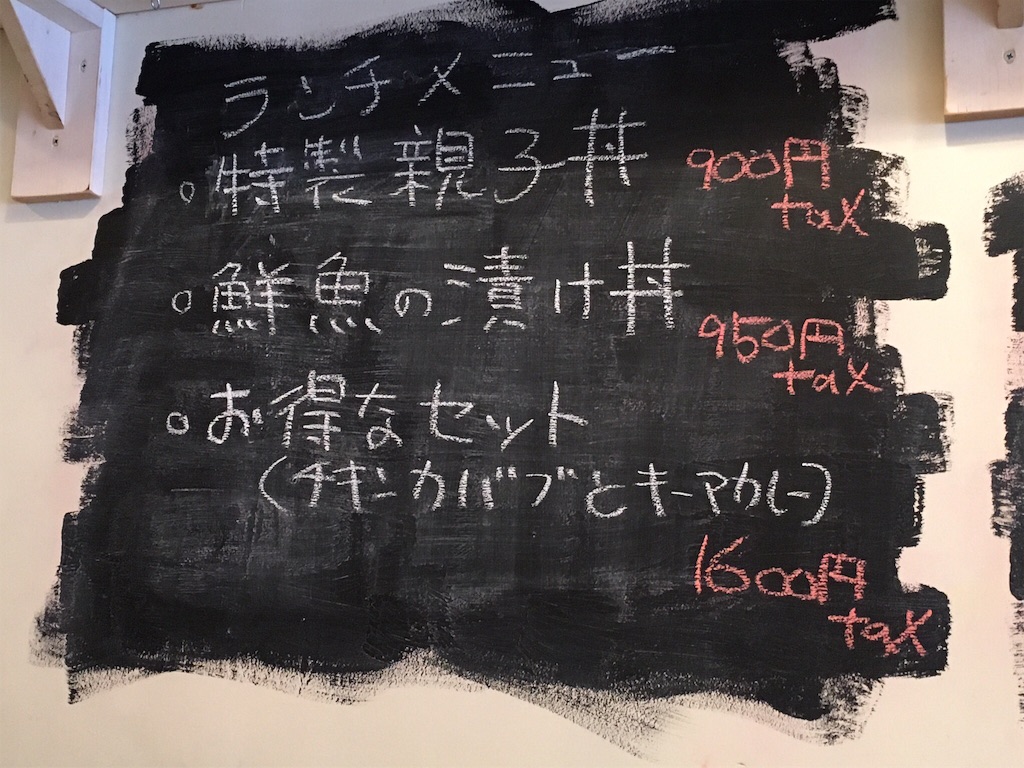 ランチメニュー
。特製親子丼 900円
tax
。鮮魚の漬け丼 950円
tax
。お得なセット
(チキンカバブとキーマカレー)
1600円
tax